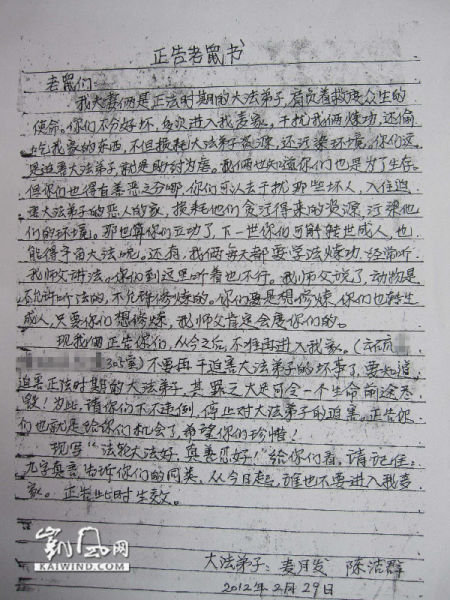 正告老鼠书
老鼠们：
我夫妻俩是正法时期的大法弟子，肩负着救度众生的
使命。你们不分好坏，多次进入我麦家，干扰我俩炼功，还偷
吃我家的东西，不但损耗大法弟子资源，还污染环境。你们这
是迫害大法弟子，就是助纣为虐。我俩也知道你们也是为了生存。
但你们也得有善恶之分哪，你们可以去干扰那些坏人，入住迫
害大法弟子的恶人的家，损耗他们贪污得来的资源，污染他
们的环境。那也算你们立功了，下一世你们可能转世成人，也
能得宇宙大法呢。还有，我俩每天都要学法炼功，经常听
我师父讲法。你们到这里听着也不行。我师父说了，动物是
不允许听法的，不允许修炼的。你们要是想修炼，你们也转生
成人，只要你们想修炼，我师父肯定会度你们的。
现我俩正告你们，从今之后，不准再进入我家。（
305室）不要再干迫害大法弟子的坏事了，要知道，
迫害正法时期的大法弟子，其罪之大足可令一个生命前途尽
毁！为此，请你们不要违例，停止对大法弟子的迫害。正告你
们也就是给你们机会了，希望你们珍惜！
现写“法轮大法好，真善忍好！”给你们看，请记住：
九字真言，告诉你们的同类，从今日起，谁也不要进入我麦
家。正告此时生效。
大法弟子：麦月发 陈洁群
2012年2月29日
凯风网
KAIWIND.COM